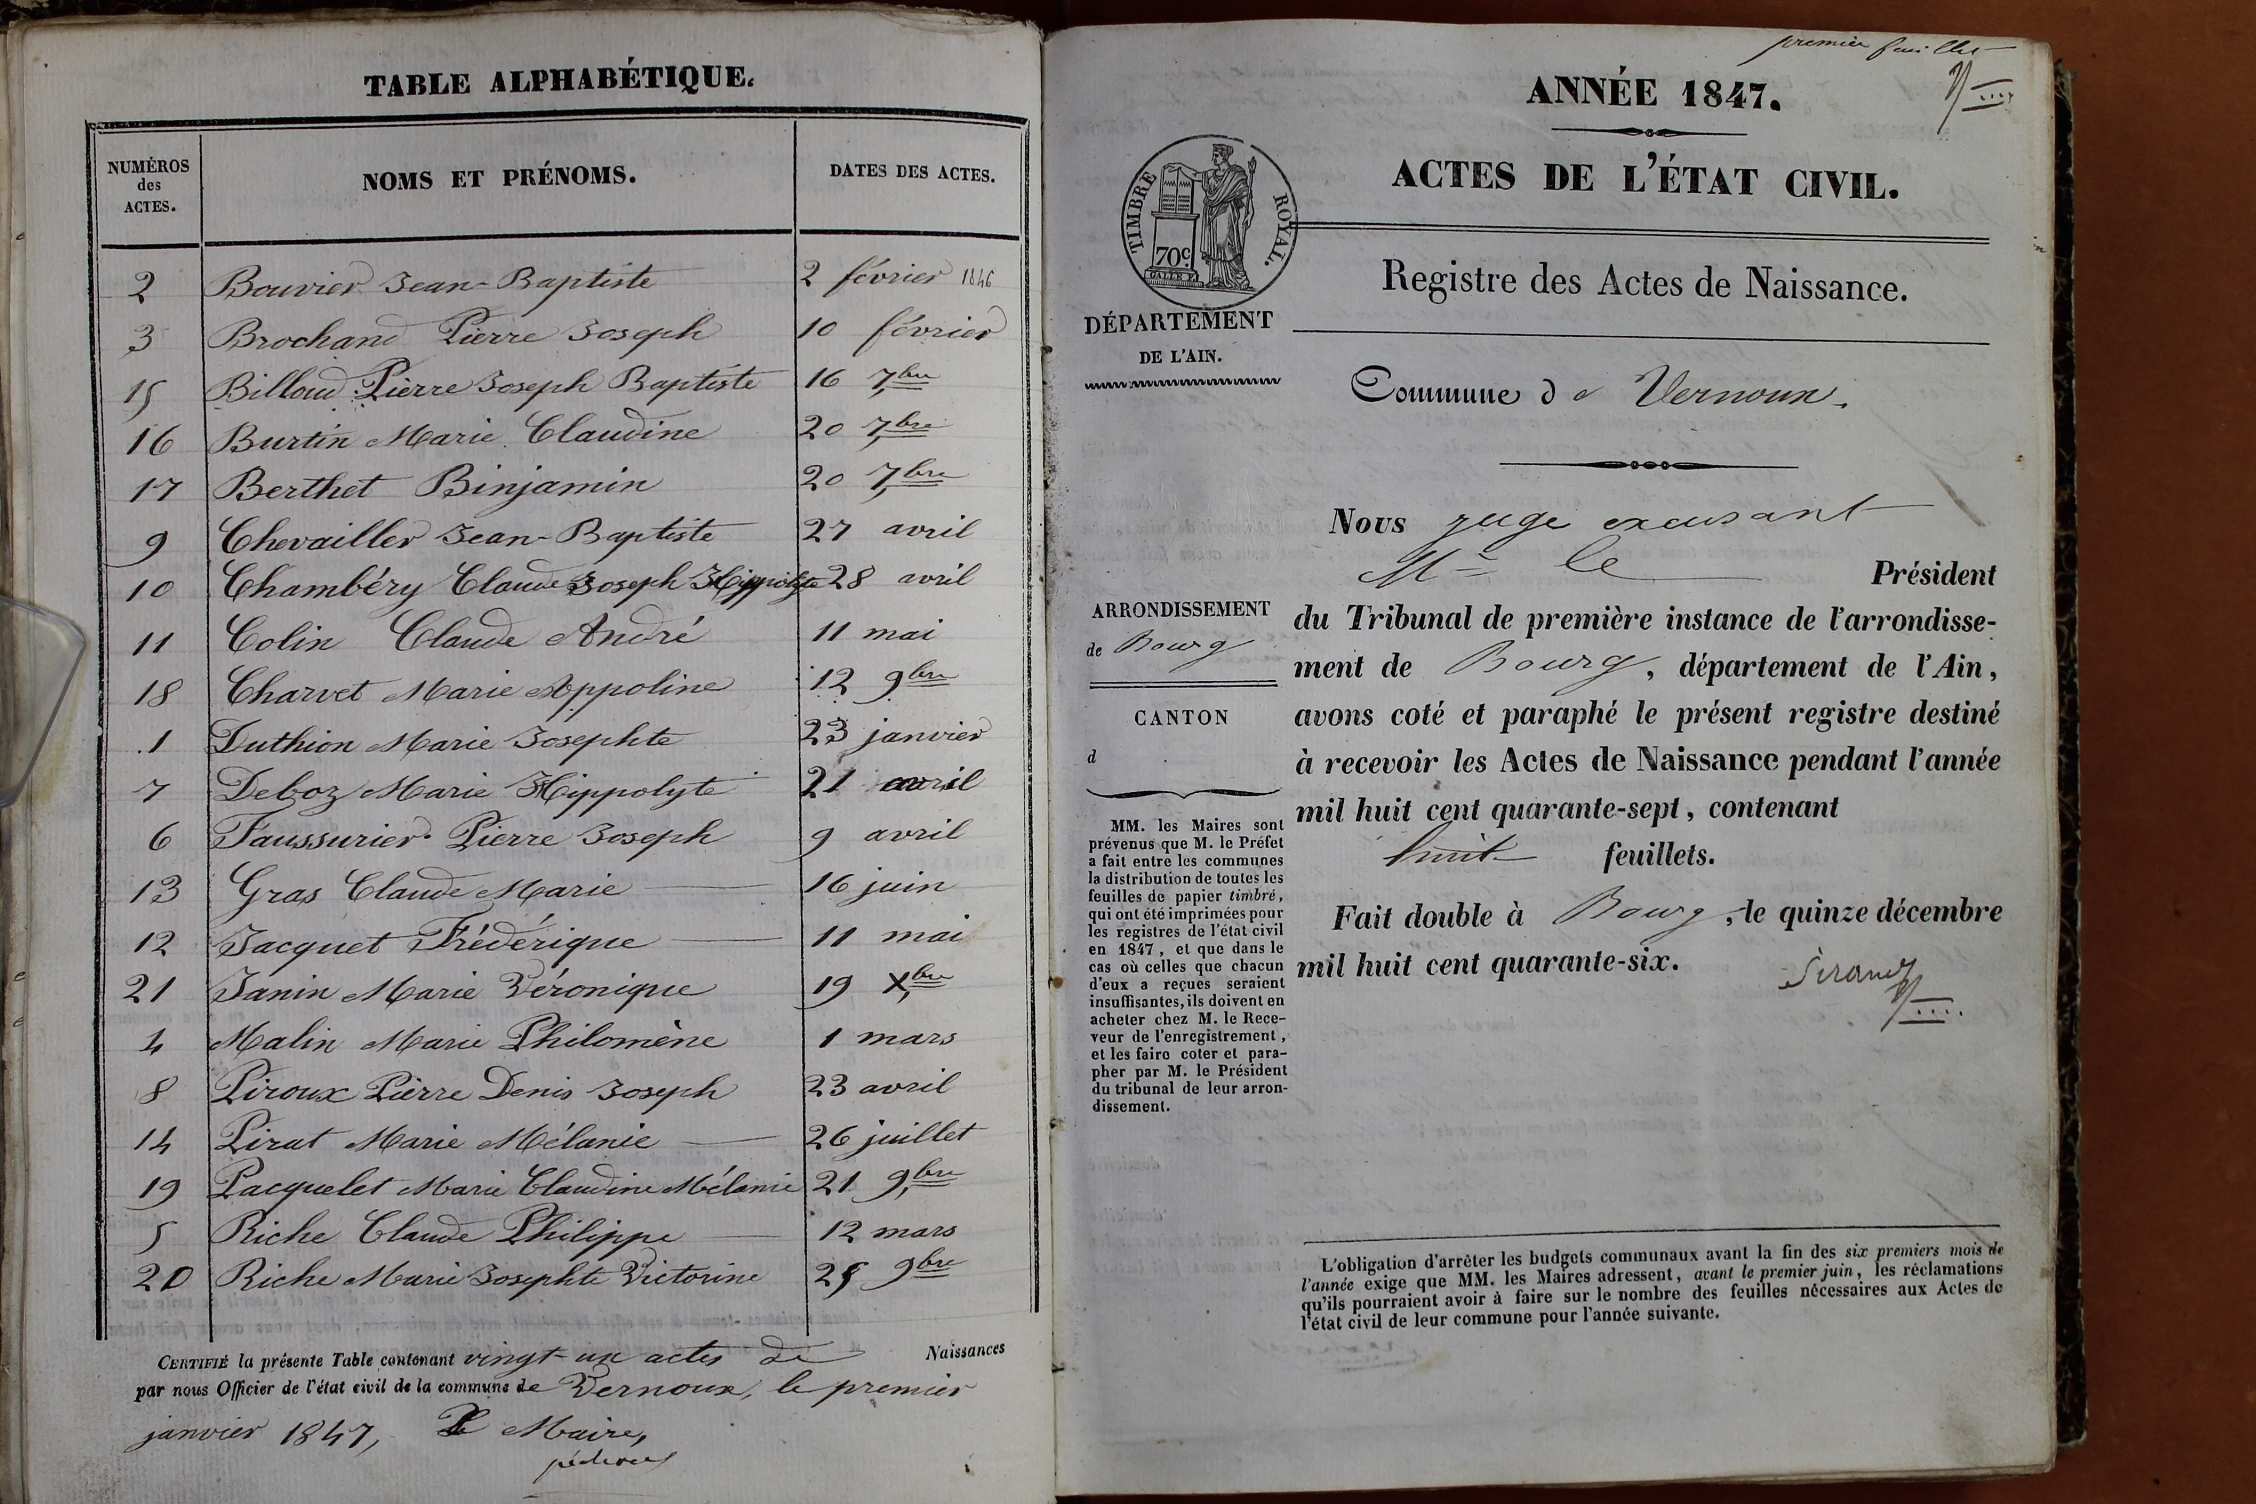 TABLE ALPHABÉTIQUE.
NUMÉROS des ACTES. NOMS ET PRÉNOMS. DATES DES ACTES.
2 Bouvier Jean-Baptiste 2 février 1846
3 Brochand Pierre Joseph 10 février
15 Billoud Pierre Joseph Baptiste 16 7bre
16 Burtin Marie Claudine 20 7bre
17 Berthet Binjamin 20 7bre
9 Chevailler Jean-Baptiste 27 avril
10 Chambéry Claude Joseph Hippolyte 28 avril
11 Colin Claude André 11 mai
18 Charvet Marie Appoline 12 9bre
1 Duthion Marie Josephte 23 janvier
7 Deboz Marie Hippolyte 21 avril
6 Faussurier Pierre Joseph 9 avril
13 Gras Claude Marie 16 juin
12 Jacquet Frédérique 11 mai
21 Janin Marie Véronique 19 Xbre
4 Malin Marie Philomène 1 mars
8 Piroux Pierre Denis Joseph 23 avril
14 Pirat Marie Mélanie 26 juillet
19 Pacquelet Marie Claudine Mélanie 21 9bre
5 Riche Claude Philippe 12 mars
20 Riche Marie Josephte Victorine 25 9bre
CERTIFIÉ la présente Table contenant vingt-un actes de Naissances
par nous Officier de l'état civil de la commune de Vernoux, le premier
janvier 1847, Le Maire,
premier feuillet
ANNÉE 1847.
ACTES DE L'ÉTAT CIVIL.
TIMBRE ROYAL.
70c.
Registre des Actes de Naissance.
DÉPARTEMENT
DE L'AIN.
Commune de Vernoux.
Nous juge excusant
Mr le Président
du Tribunal de première instance de l'arrondisse-
ment de Bourg, département de l'Ain,
avons coté et paraphé le présent registre destiné
à recevoir les Actes de Naissance pendant l'année
mil huit cent quarante-sept, contenant
huit feuillets.
Fait double à Bourg, le quinze décembre
mil huit cent quarante-six.
ARRONDISSEMENT
de Bourg
CANTON
d
MM. les Maires sont
prévenus que M. le Préfet
a fait entre les communes
la distribution de toutes les
feuilles de papier timbré,
qui ont été imprimées pour
les registres de l'état civil
en 1847, et que dans le
cas où celles que chacun
d'eux a reçues seraient
insuffisantes, ils doivent en
acheter chez M. le Rece-
veur de l'enregistrement,
et les faire coter et para-
pher par M. le Président
du tribunal de leur arron-
dissement.
L'obligation d'arrêter les budgets communaux avant la fin des six premiers mois de
l'année exige que MM. les Maires adressent, avant le premier juin, les réclamations
qu'ils pourraient avoir à faire sur le nombre des feuilles nécessaires aux Actes de
l'état civil de leur commune pour l'année suivante.